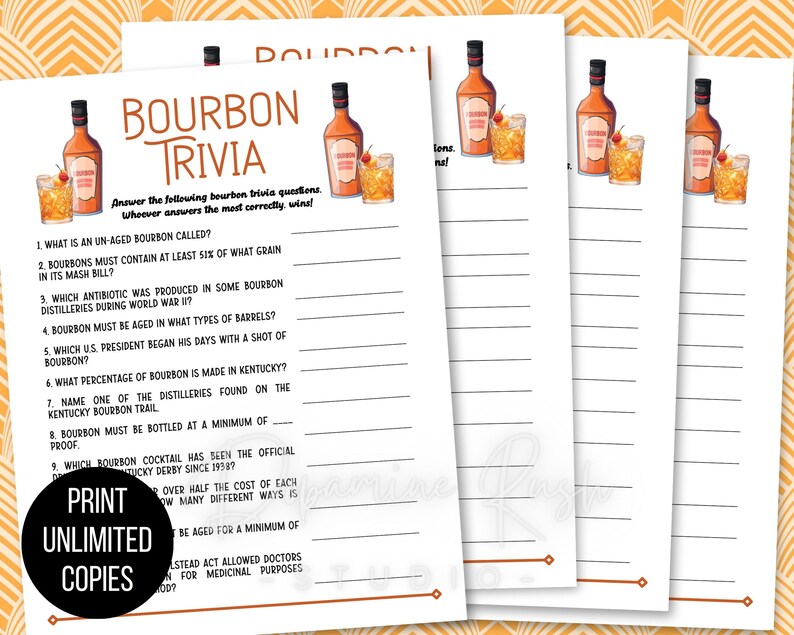 BOURBON
TRIVIA
Answer the following bourbon trivia questions.
Whoever answers the most correctly, wins!
1. WHAT IS AN UN-AGED BOURBON CALLED?
2. BOURBONS MUST CONTAIN AT LEAST 51% OF WHAT GRAIN
IN ITS MASH BILL?
3. WHICH ANTIBIOTIC WAS PRODUCED IN SOME BOURBON
DISTILLERIES DURING WORLD WAR II?
4. BOURBON MUST BE AGED IN WHAT TYPES OF BARRELS?
5. WHICH U.S. PRESIDENT BEGAN HIS DAYS WITH A SHOT OF
BOURBON?
6. WHAT PERCENTAGE OF BOURBON IS MADE IN KENTUCKY?
7. NAME ONE OF THE DISTILLERIES FOUND ON THE
KENTUCKY BOURBON TRAIL.
8. BOURBON MUST BE BOTTLED AT A MINIMUM OF ____
PROOF.
9. WHICH BOURBON COCKTAIL HAS BEEN THE OFFICIAL
KENTUCKY DERBY SINCE 1938?
OVER HALF THE COST OF EACH
HOW MANY DIFFERENT WAYS IS
BE AGED FOR A MINIMUM OF
VOLSTEAD ACT ALLOWED DOCTORS
FOR MEDICINAL PURPOSES
BOURBON
BOURBON
PRINT
UNLIMITED
COPIES
BOURBON
BOURBON
ons.
ns!
BOURBON
s.
BOURBON
Dopamine Rush
- STUDIO -